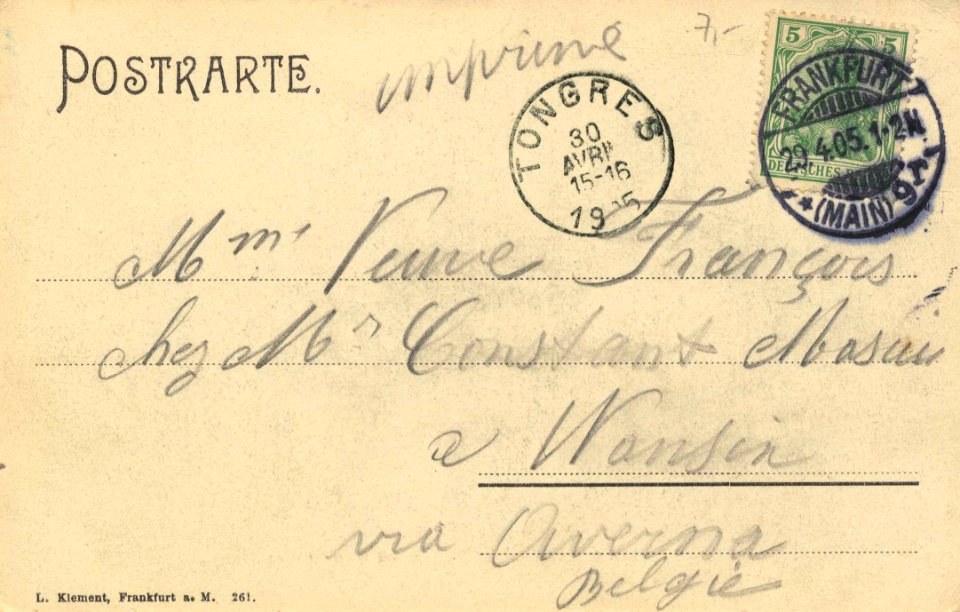 POSTKARTE.
imprimé
7,-
5 5
DEUTSCHES
FRANKFURT 1
29.4.05.1-2N.
* (MAIN) 9r *
TONGRES
30
AVRIL
15-16
19 5
Mme Veuve François
chez Mr Constant
à Wansin
via Averna
België
L. Klement, Frankfurt a. M. 261.